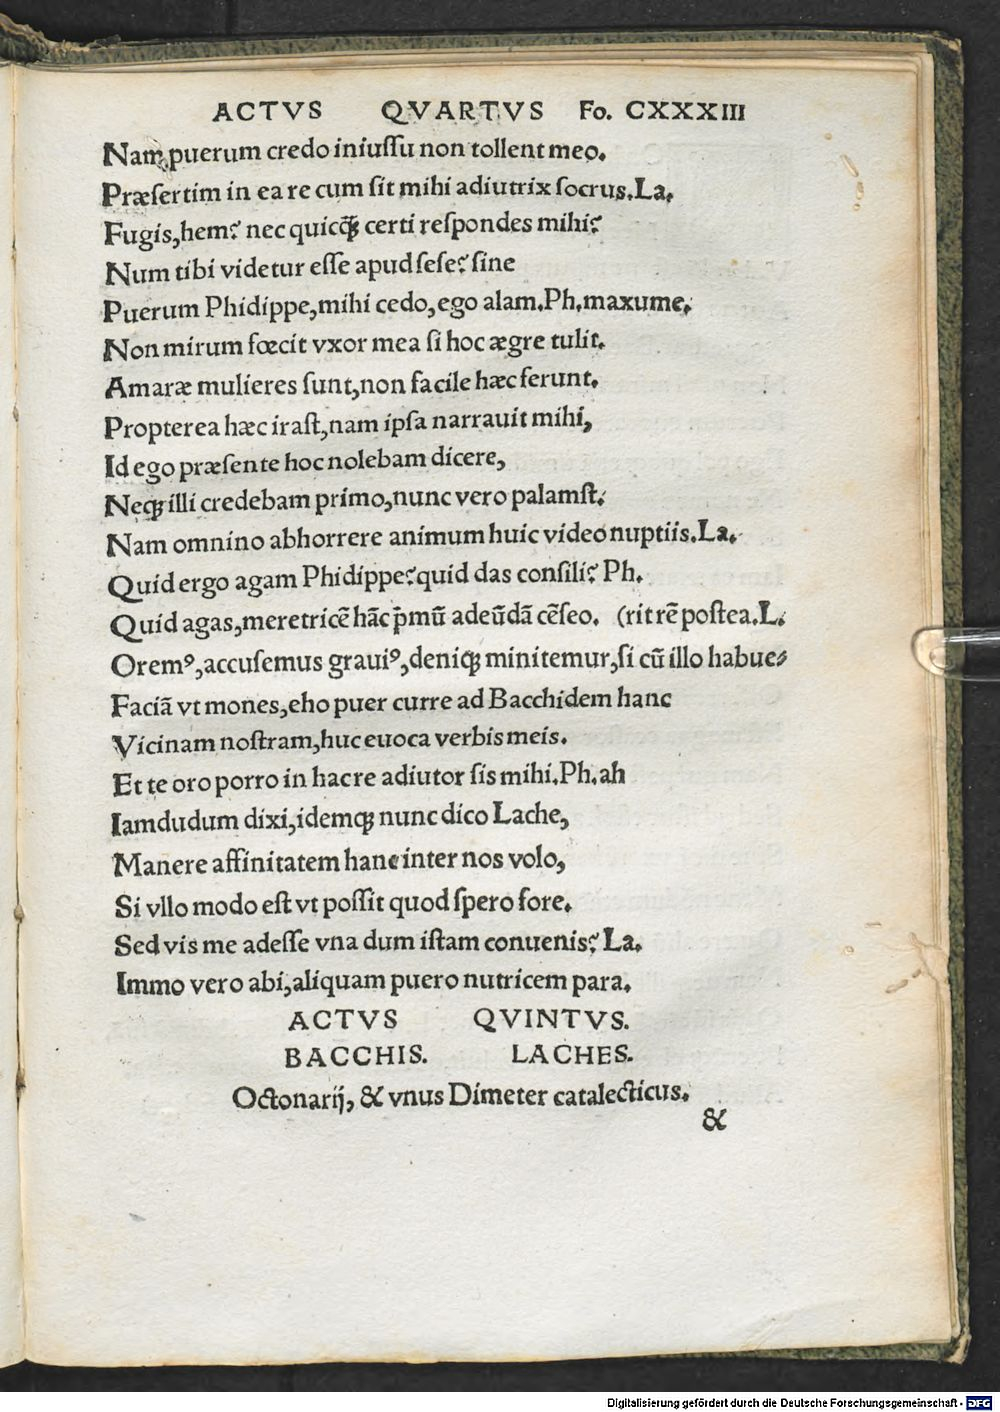 ACTVS QVARTVS Fo. CXXXIII
Nam puerum credo iniuſſu non tollent meo.
Præſertim in ea re cum ſit mihi adiutrix ſocrus.La.
Fugis,hem? nec quicꝗ̃ certi reſpondes mihi?
Num tibi videtur eſſe apud ſeſe? ſine
Puerum Phidippe,mihi cedo,ego alam.Ph.maxume.
Non mirum fœcit vxor mea ſi hoc ægre tulit.
Amaræ mulieres ſunt,non facile hæc ferunt.
Propterea hæc iraſt,nam ipſa narrauit mihi,
Id ego præſente hoc nolebam dicere,
Neqꝫ illi credebam primo,nunc vero palamſt.
Nam omnino abhorrere animum huic video nuptiis.La.
Quid ergo agam Phidippe?quid das conſili? Ph.
Quid agas,meretricē hāc p̄mū adeūdā cēſeo. (rit rē poſtea.L.
Oremꝰ,accuſemus grauiꝰ,deniqꝫ minitemur,ſi cū illo habue⸗
Faciā vt mones,eho puer curre ad Bacchidem hanc
Vicinam noſtram,huc euoca verbis meis.
Et te oro porro in hac re adiutor ſis mihi.Ph.ah
Iamdudum dixi,idemqꝫ nunc dico Lache,
Manere affinitatem hanc inter nos volo,
Si vllo modo eſt vt poſſit quod ſpero fore.
Sed vis me adeſſe vna dum iſtam conuenis? La.
Immo vero abi,aliquam puero nutricem para.
ACTVS QVINTVS.
BACCHIS. LACHES.
Octonarij, & vnus Dimeter catalecticus.
&
Digitalisierung gefördert durch die Deutsche Forschungsgemeinschaft - DFG